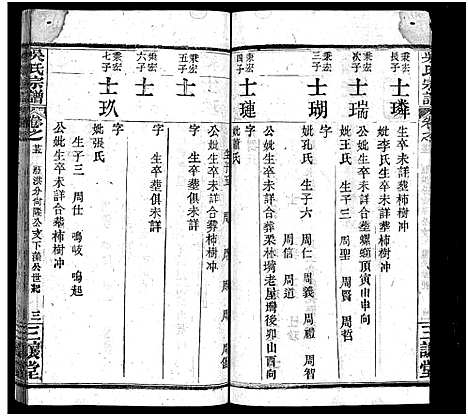 吳氏宗譜
三讓堂
秉宏長子
士璘
生卒未詳葬柿樹冲
妣李氏生卒未詳葬螺螄頂寅山申向
秉宏次子
士瑞
妣王氏 生子三 周聖 周賢 周哲
公妣生卒未詳合葬柿樹冲
秉宏三子
士瑚
妣孔氏 生子六 周仁 周義 周禮 周智
周信 周道
公妣生卒未詳合葬柔林嶺老屋塆後卯山酉向
秉宏四子
士璉
公妣生卒未詳合葬柿樹冲
秉宏五子
士
字
生卒葬俱未詳
秉宏六子
士
字
生卒葬俱未詳
秉宏七子
士玖
字
妣張氏
生子三 周仕 鳴岐 鳴起
公妣生卒未詳合葬柿樹冲
吳氏宗譜
卷之
三
三讓堂